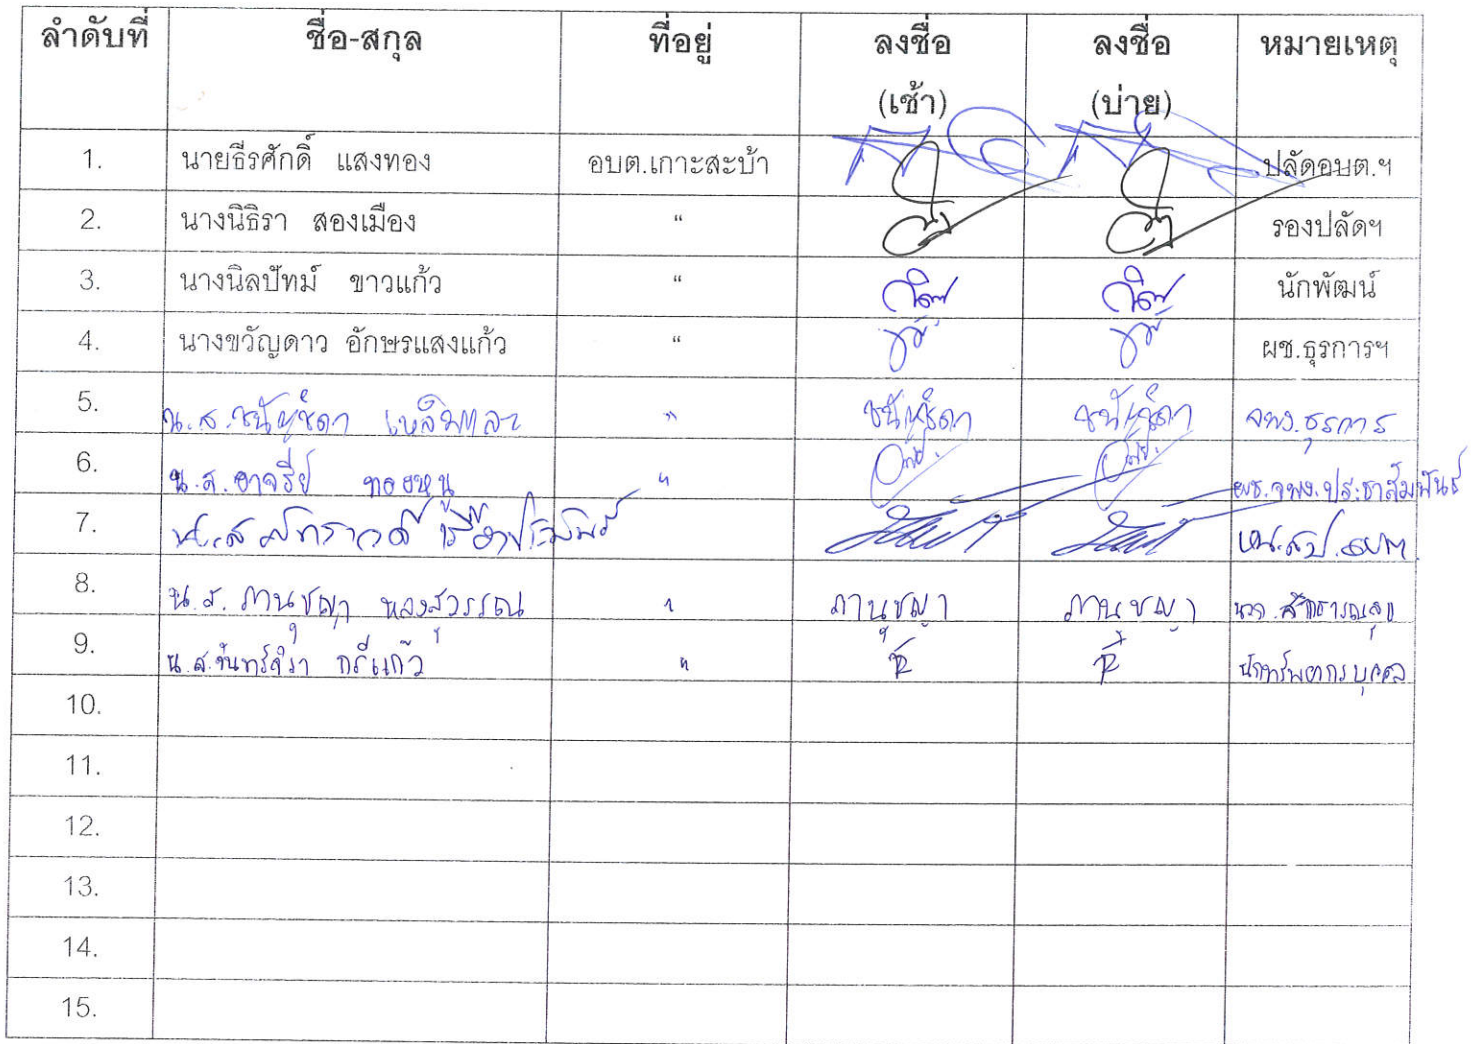 ลำดับที่ ชื่อ-สกุล ที่อยู่ ลงชื่อ (เช้า) ลงชื่อ (บ่าย) หมายเหตุ
1. นายธีรศักดิ์ แสงทอง อบต.เกาะสะบ้า ปลัดอบต.ฯ
2. นางนิธิรา สองเมือง " รองปลัดฯ
3. นางนิลปัทม์ ขาวแก้ว " นักพัฒน์
4. นางขวัญดาว อักษรแสงแก้ว " ผช.ธุรการฯ
5. น.ส. " จพง.ธุรการ
6. น.ส.อาจรีย์ ทองหนู " ผช.จพง.ประชาสัมพันธ์
7. น.ส.
8. น.ส. ภานุชญา หลงสุวรรณ " ภานุชญา ภานุชญา นวก.สาธารณสุข
9. น.ส.จันทร์จิรา กรีแก้ว " นักทรัพยากรบุคคล
10.
11.
12.
13.
14.
15.